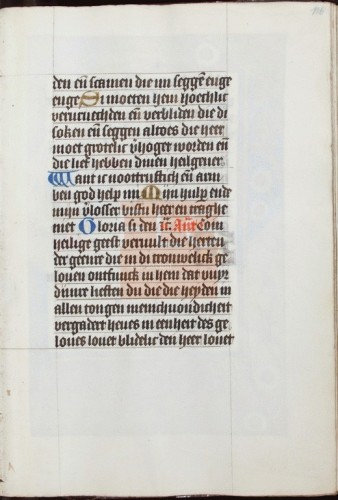 den en̄ scamen die mi seggē euge
euge Si moeten hem hoechlic
verurechden en̄ verbliden die di
soken en̄ seggen altoes die heer
moet grotelic v̓hoget worden en̄
die lief hebben dinen heilgeuer
Want ic noottrustich en̄ arm
ben god help mi Mijn hulp ende
mijn v̓losser bistu heer en traghe
niet Gloria si den ic Ant Com
heilige geest vervult die herten
der geenre die in di trouwelick ge
louen ontfinck in hem dat vuyr
dijnre lieften du die die heyden in
allen tongen menichuoudicheit
vergadert heues in eenheit des ge
loues louet blidelic den heer louet